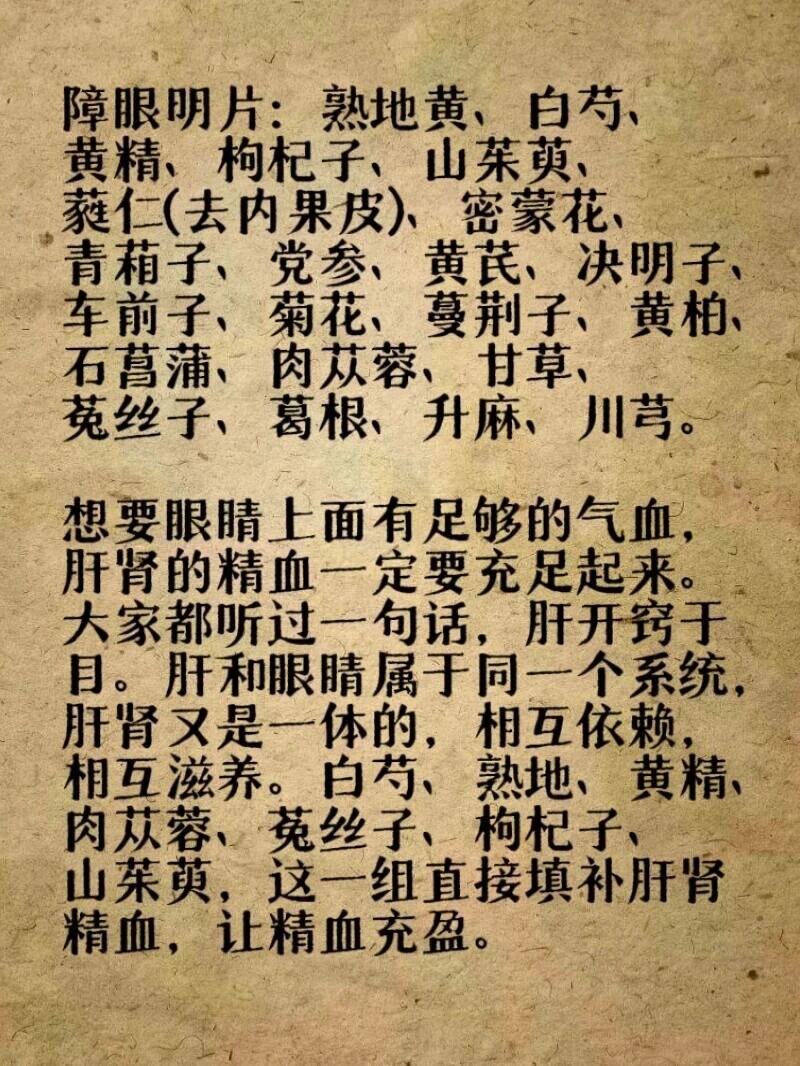 障眼明片：熟地黄、白芍、
黄精、枸杞子、山茱萸、
蕤仁(去内果皮)、密蒙花、
青葙子、党参、黄芪、决明子、
车前子、菊花、蔓荆子、黄柏、
石菖蒲、肉苁蓉、甘草、
菟丝子、葛根、升麻、川芎。
想要眼睛上面有足够的气血，
肝肾的精血一定要充足起来。
大家都听过一句话，肝开窍于
目。肝和眼睛属于同一个系统，
肝肾又是一体的，相互依赖，
相互滋养。白芍、熟地、黄精、
肉苁蓉、菟丝子、枸杞子、
山茱萸，这一组直接填补肝肾
精血，让精血充盈。